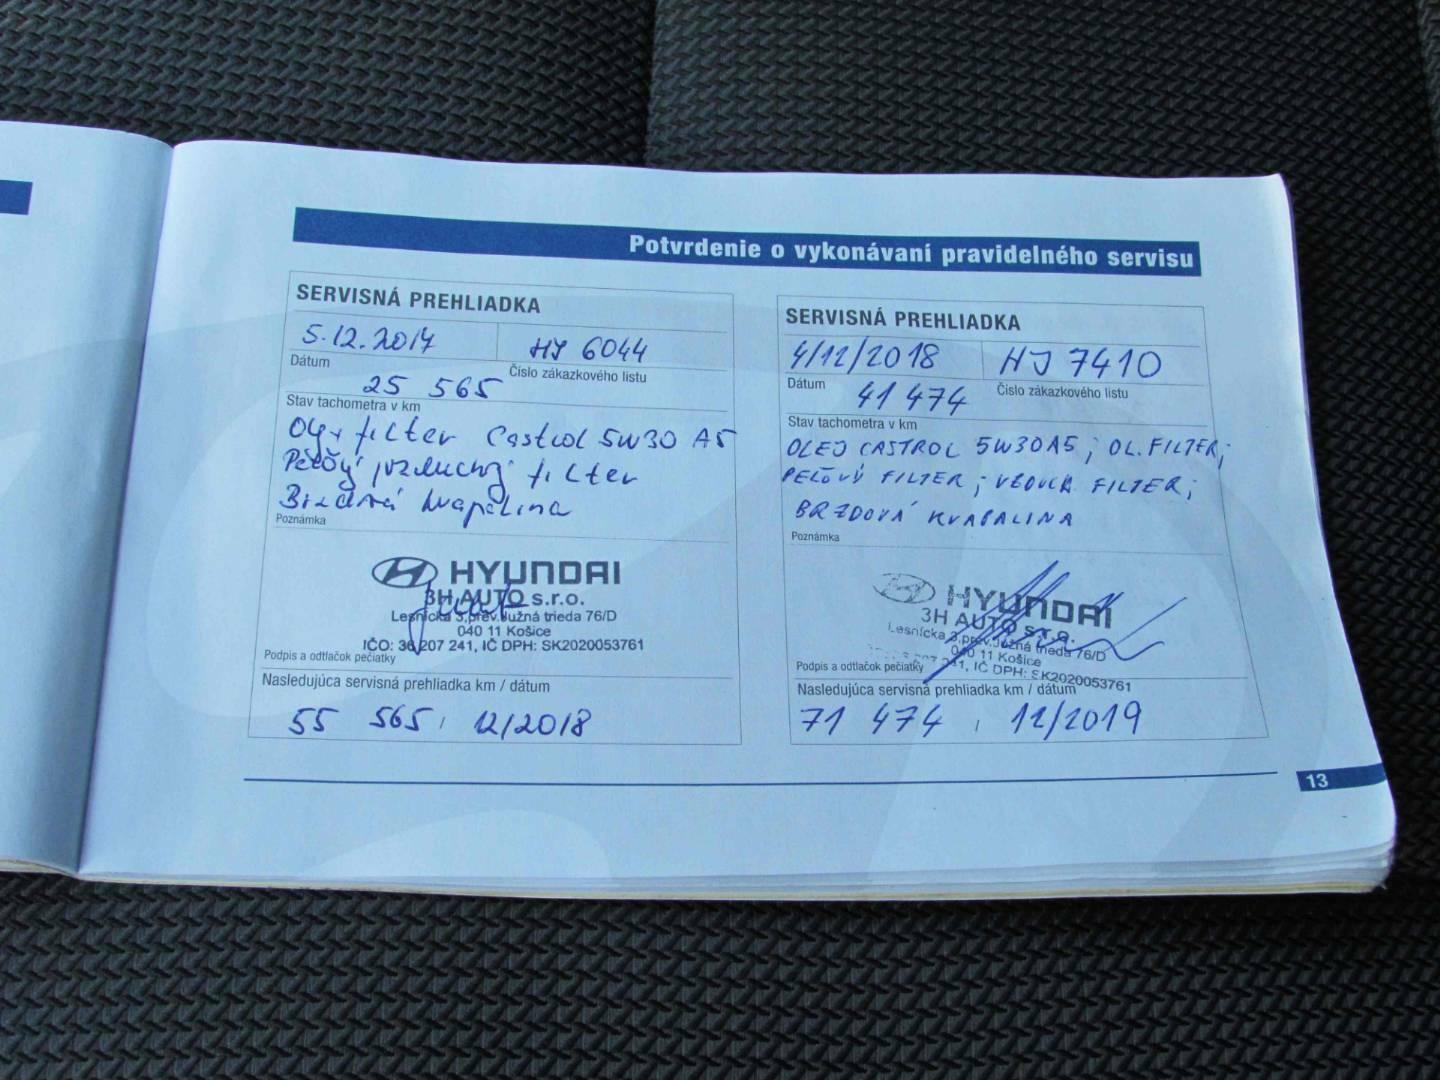 Potvrdenie o vykonávaní pravidelného servisu
SERVISNÁ PREHLIADKA
5.12.2017 HJ 6044
Dátum Číslo zákazkového listu
25 565
Stav tachometra v km
filter Castrol 5W30 A5
Peľový vzduchový filter
Brzdová kvapalina
Poznámka
HYUNDAI
3H AUTO s.r.o.
Lesnícka 3,prev.Južná trieda 76/D
040 11 Košice
IČO: 36 207 241, IČ DPH: SK2020053761
Podpis a odtlačok pečiatky
Nasledujúca servisná prehliadka km / dátum
55 565, 12/2018
SERVISNÁ PREHLIADKA
4/12/2018 HJ 7410
Dátum Číslo zákazkového listu
41 474
Stav tachometra v km
OLEJ CASTROL 5W30A5; OL. FILTER;
PEĽOVÝ FILTER; VZDUCH. FILTER;
BRZDOVÁ KVAPALINA
Poznámka
HYUNDAI
3H AUTO s.r.o.
Lesnícka 3,prev.Južná trieda 76/D
040 11 Košice
207 241, IČ DPH: SK2020053761
Podpis a odtlačok pečiatky
Nasledujúca servisná prehliadka km / dátum
71 474, 12/2019
13